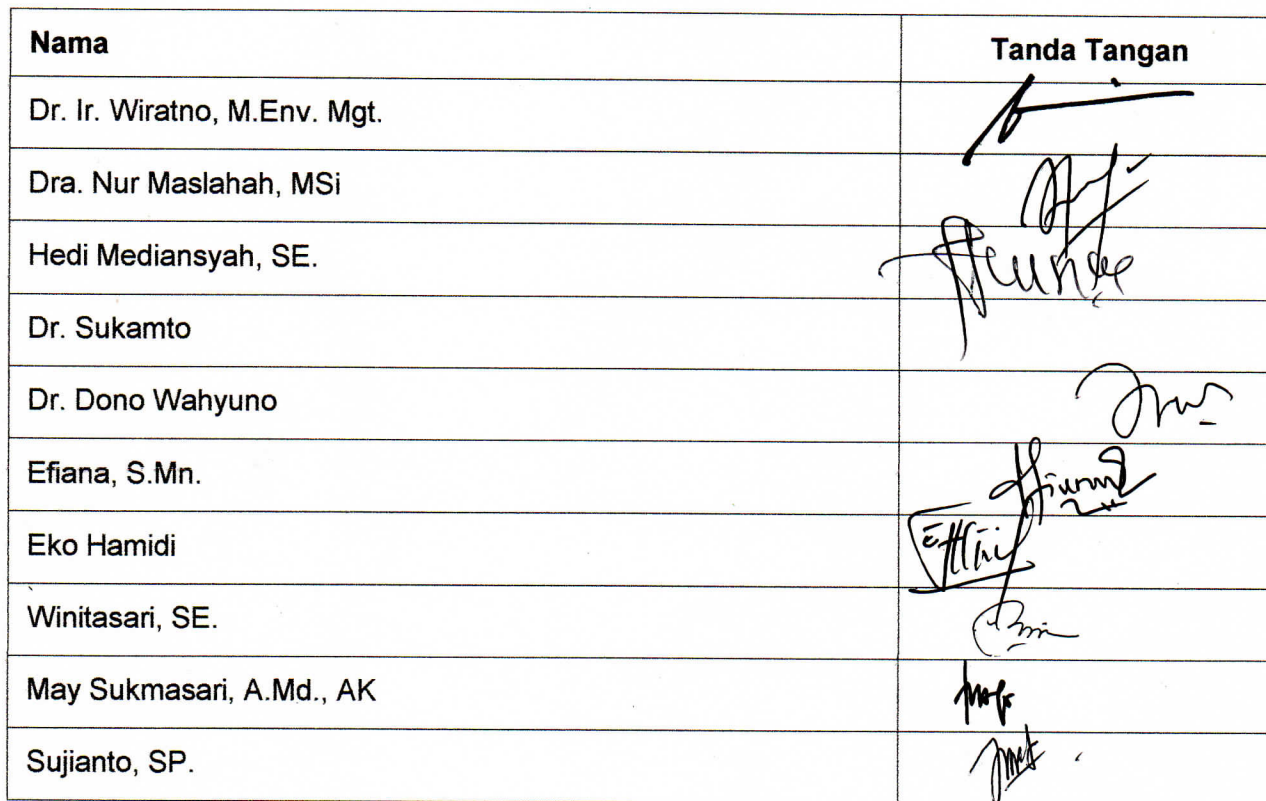 Nama Tanda Tangan
Dr. Ir. Wiratno, M.Env. Mgt.
Dra. Nur Maslahah, MSi
Hedi Mediansyah, SE.
Dr. Sukamto
Dr. Dono Wahyuno
Efiana, S.Mn.
Eko Hamidi
Winitasari, SE.
May Sukmasari, A.Md., AK
Sujianto, SP.